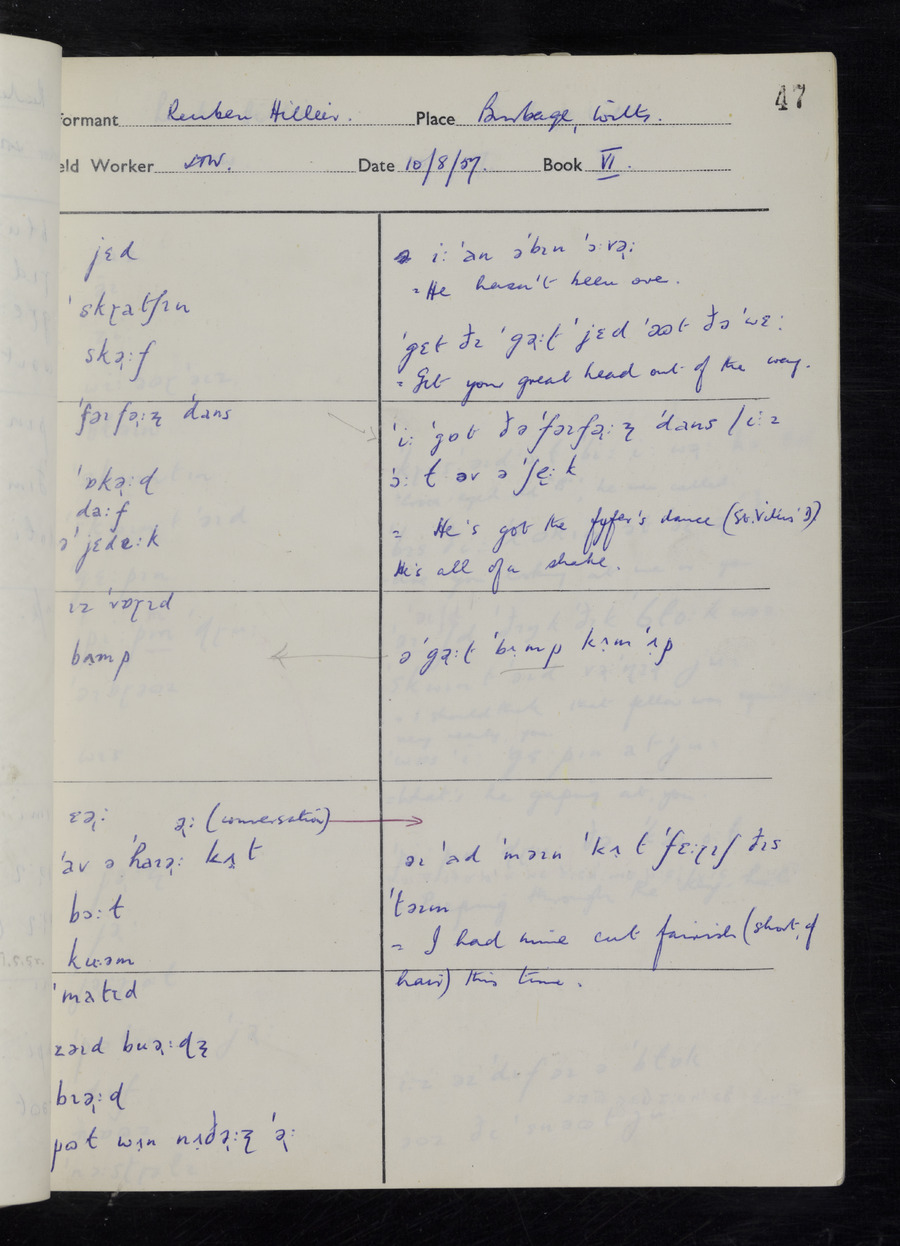 47
formant Reuben Hillier. Place Burbage, Wilts.
eld Worker Date 10/8/57. Book VI.
jɛd
ˈskɽatʃɪn
skəɽ:f
ˈfəɪfəɽ:ʐ ˈdans
ˈɒkəɽ:ɖ
da:f
ə ˈjɛde:k
ɪz ˈvɒɽɪd
bʌmp
ɛəɽ: əɽ: (conversation)
ˈav ə ˈhaɪəɽ: kʌt
bɔ:t
ku:əm
ˈmatɪd
zəɪd buəɽ:ɖʐ
bɪəɽ:ɖ
i: ˈan əˈbɪn ˈɔ:vəɽ:
= He hasn't been over.
ˈgɛt ðɪ ˈgəɽ:t ˈjɛd ˈəʊt ðə ˈwɛ:
= Get your great head out of the way.
ˈi: ˈgɒt ðə ˈfəɪfəɽ:ʐ ˈdans / i:z
ˈɔ:t əv ə ˈʃe:k
= He's got the fyfer's dance (St. Vitus' D)
He's all of a shake.
ə ˈgəɽ:t ˈbʌmp kʌm ˈʌp
əɪ ˈad ˈməɪn ˈkʌt ˈfɛ:ɽɪʃ ðɪs
ˈtəɪm
= I had mine cut fairish (short, of
hair) this time.